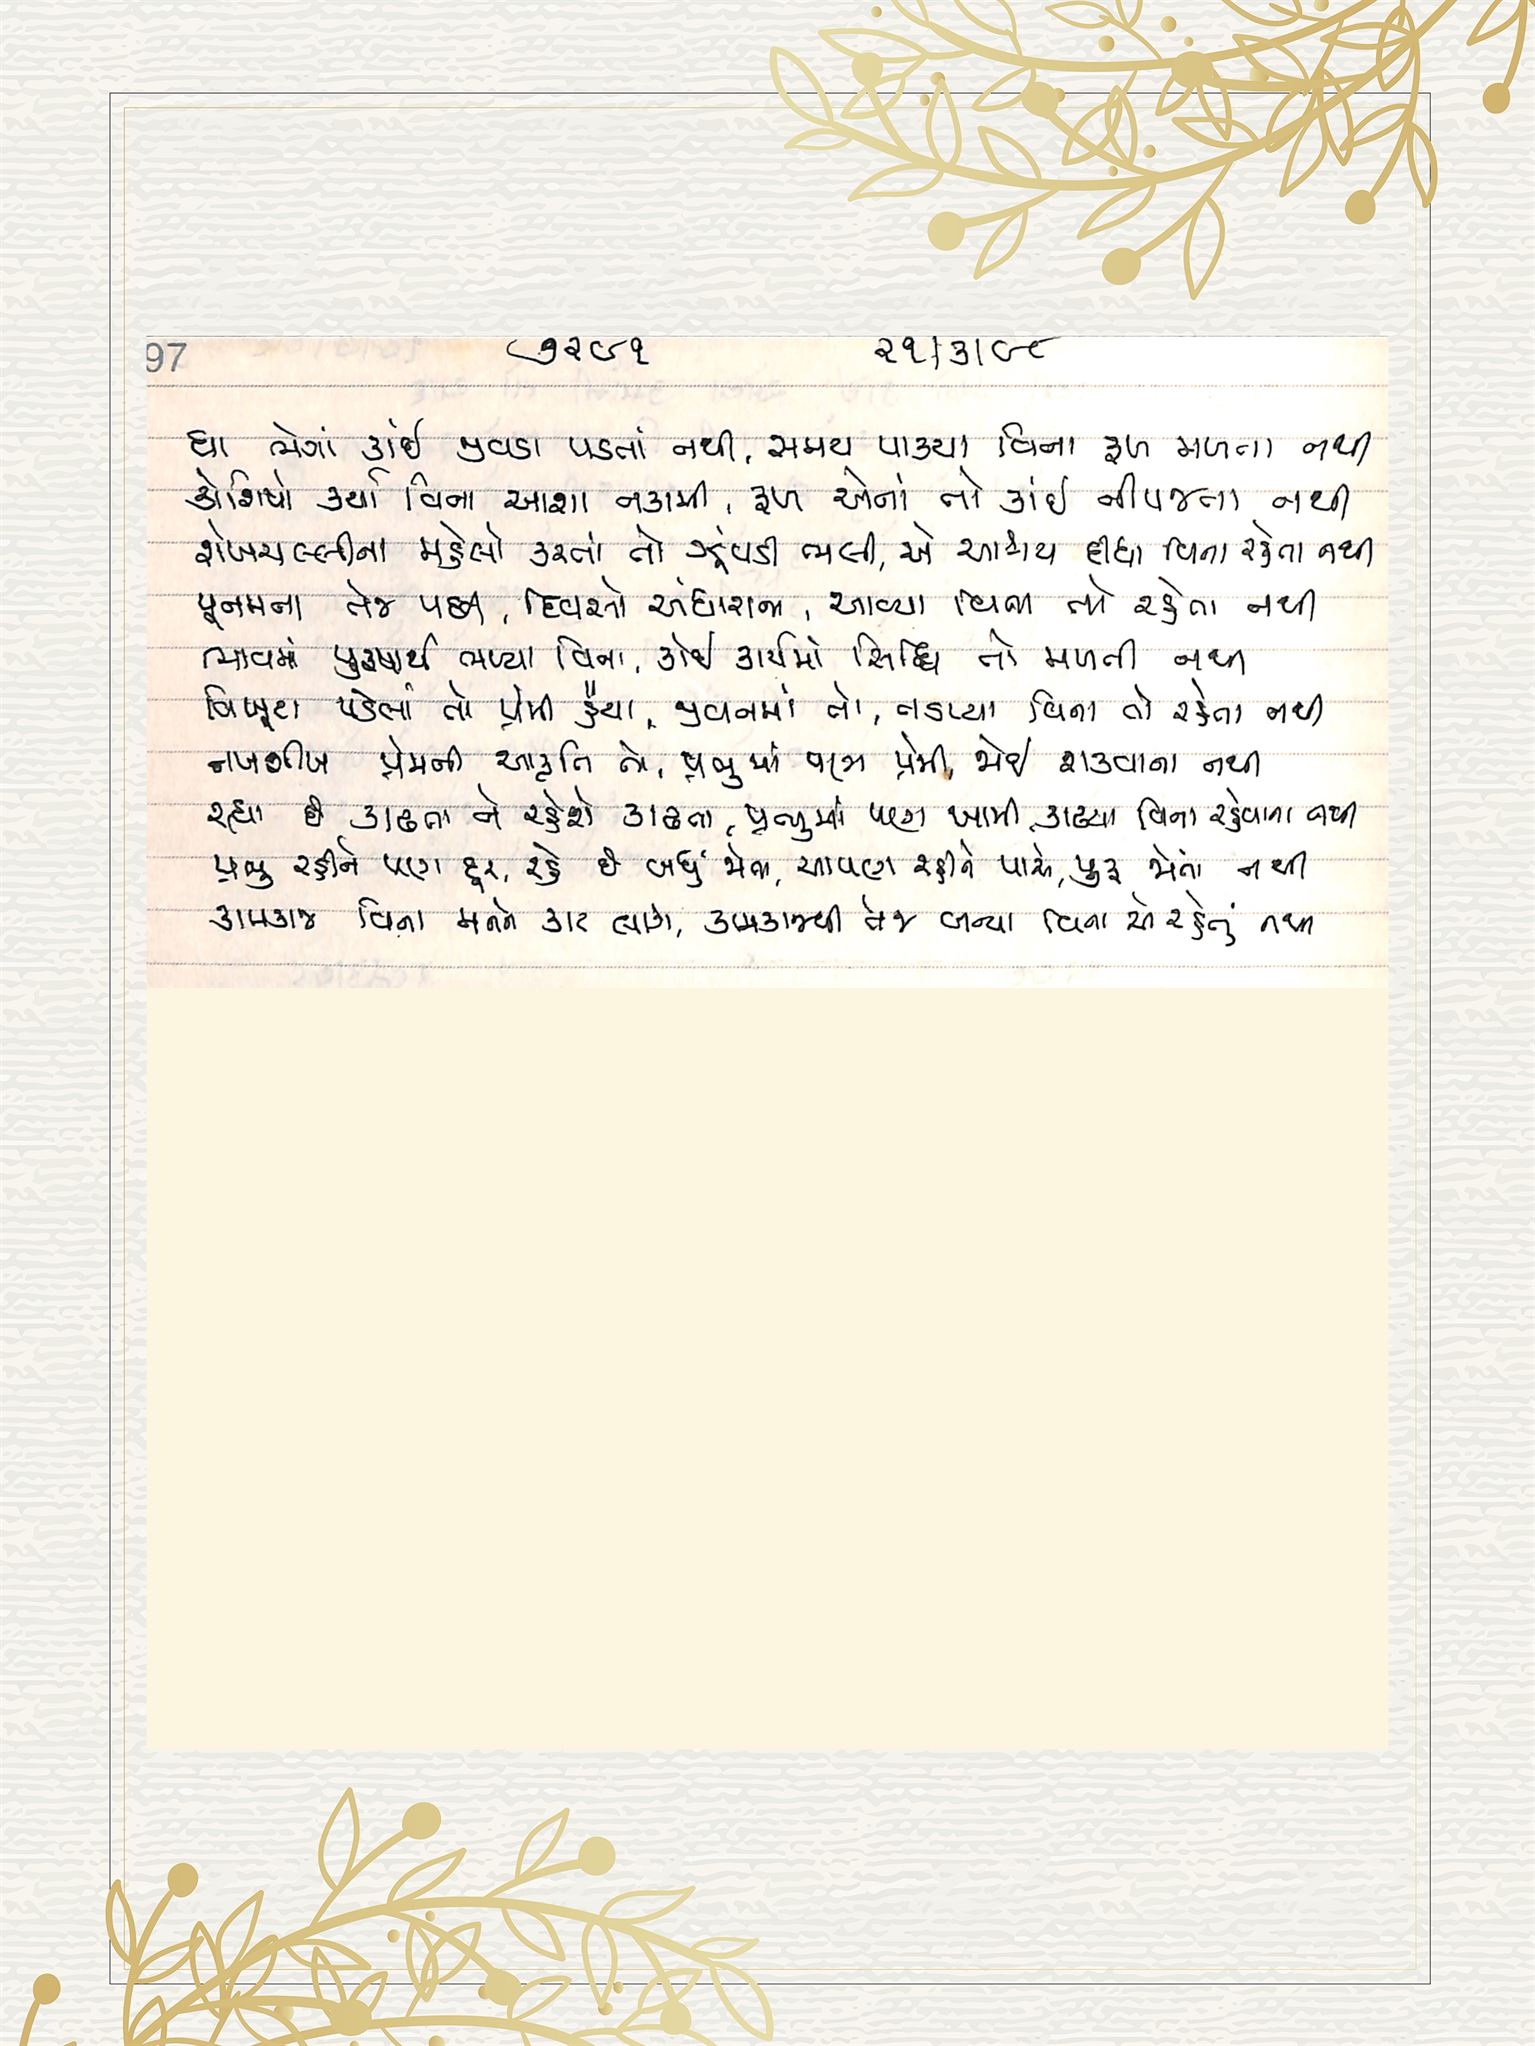 97 ૭૨૯૧ ૨૧/૩/૯૮
ઘા ભેગાં કાંઈ જીવડા પડતાં નથી, સમય પાક્યા વિના ફળ મળતા નથી
કોશિષો કર્યા વિના આશા નકામી, ફળ એનાં તો કાંઈ નીપજતા નથી
શેખચલ્લીના મહેલો કરતાં તો ઝૂંપડી ભલી, એ આશ્રય દીધા વિના રહેતા નથી
પૂનમના તેજ પછી, દિવસો અંધારાના, આવ્યા વિના તો રહેતા નથી
ભાવમાં પુરુષાર્થ ભળ્યા વિના, કોઈ કાર્યમાં સિદ્ધિ તો મળતી નથી
વિખૂટા પડેલાં તો પ્રેમી હૈયા, જીવનમાં તો, તડપ્યા વિના તો રહેતા નથી
નખશીખ પ્રેમની આકૃતિ તો, પ્રભુમાં પણ પ્રેમી, જોઈ શકવાના નથી
રહ્યા છે કાઢતા ને રહેશે કાઢતા, પ્રભુમાં પણ ખામી, કાઢ્યા વિના રહેવાના નથી
પ્રભુ રહીને પણ દૂર, રહે છે બધું જોતા, આપણે રહીને પાસે, પૂરું જોતા નથી
કામકાજ વિના મનને કાટ લાગે, કામકાજથી તેજ બન્યા વિના એ રહેતું નથી